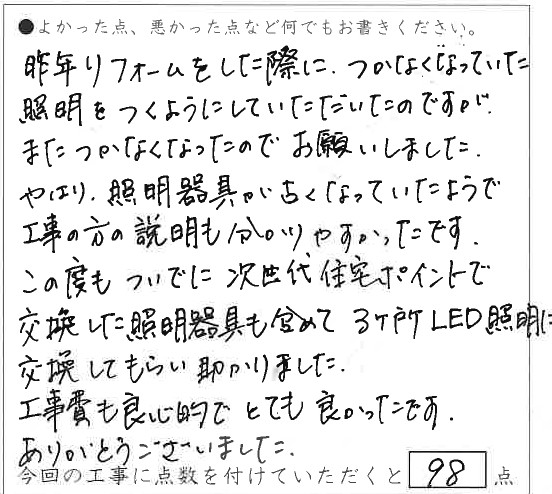 ●よかった点、悪かった点など何でもお書きください。
昨年リフォームをした際に、つかなくなっていた
照明をつくようにしていただいたのですが、
またつかなくなったのでお願いしました。
やはり、照明器具が古くなっていたようで
工事の方の説明も分かりやすかったです。
この度もついでに次世代住宅ポイントで
交換した照明器具も含めて3ヶ所LED照明に
交換してもらい助かりました。
工事費も良心的でとても良かったです。
ありがとうございました。
今回の工事に点数を付けていただくと 98 点